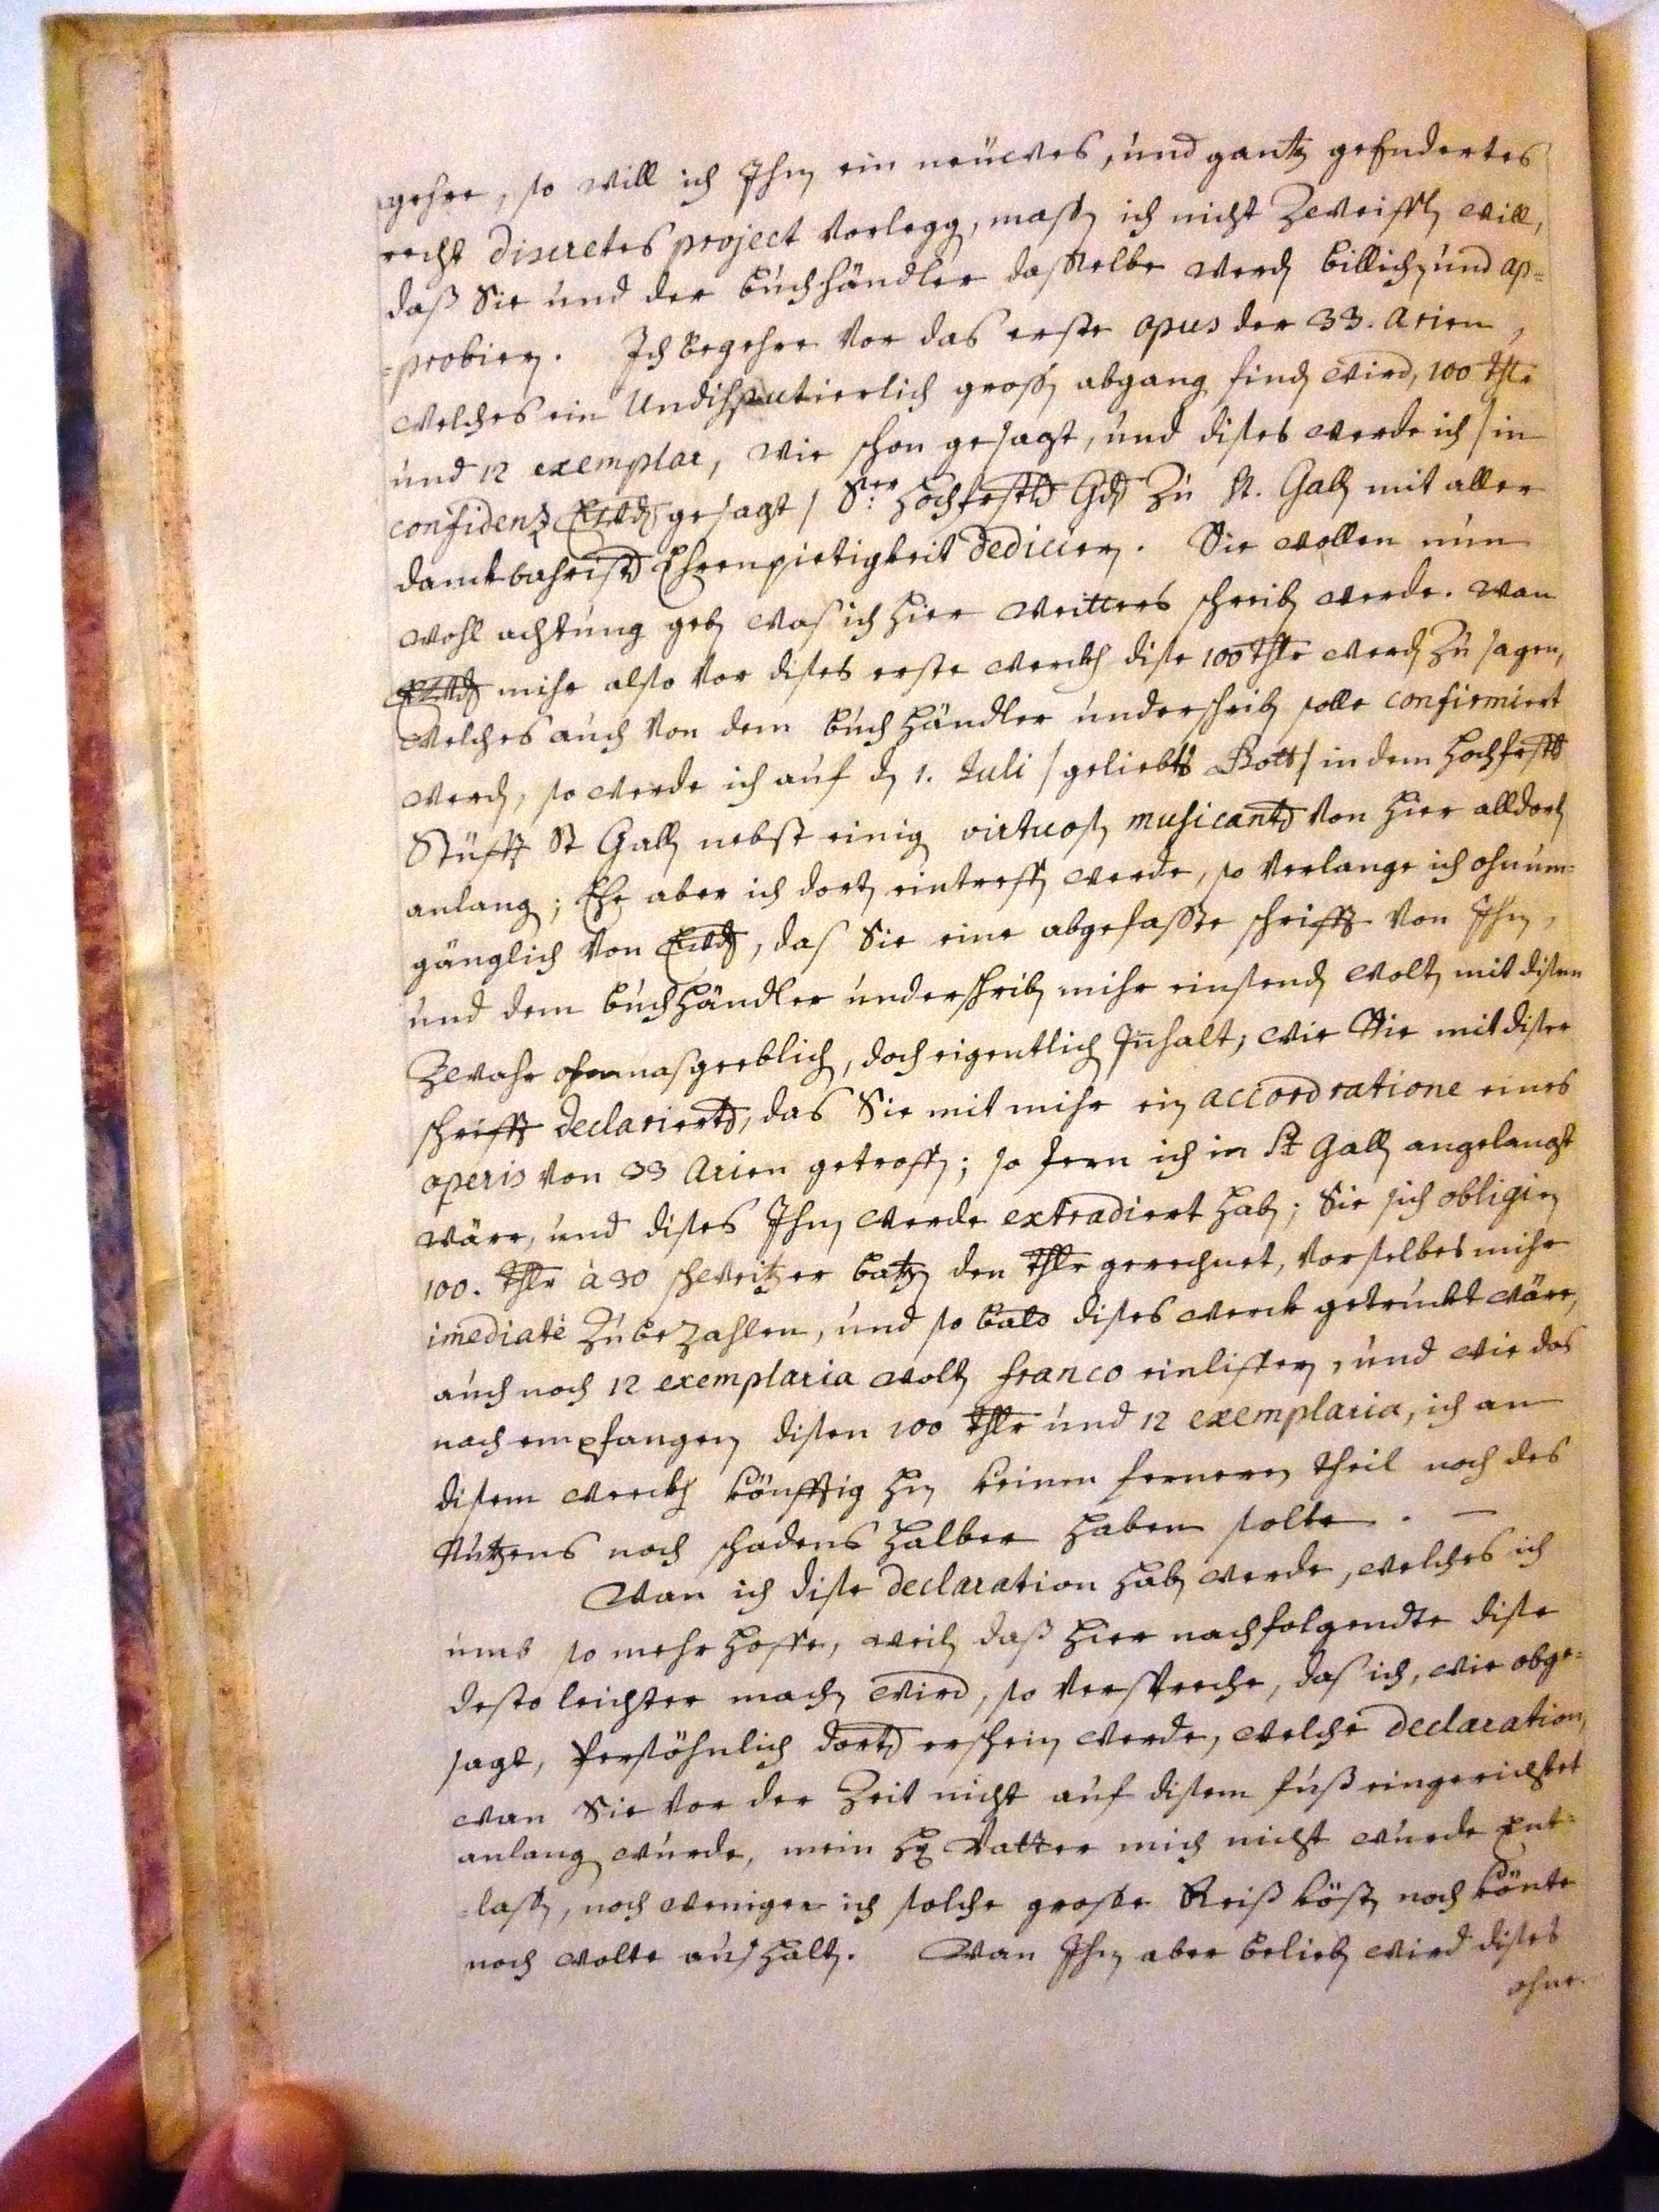 gehre, so will ich Ihn ein neüwes, und gantz geendertes
recht discretes project vorlegg, massn ich nicht Zweiffln will,
daß Sie und der buchhändler dasselbe werdn billichn und ap=
=probiern. Ich begehre vor das erste opus der 33. Arien,
welches ein Undisputierlich grossn abgang findn wird, 100 thlr
und 12 exemplar, wie schon gesagt, und dises werde ich / in
confidenz Ewd gesagt / Sr. Hochfrstl Gd Zu St. Galln mit aller
danckbahrist Ehrenpietigkeit dediciern. Sie wollen nun
wohl achtung gebn was ich hier weitteres schreibn werde. wan
Ewd mihr also vor dises erste werckh dise 100 thlr werdn Zu sagen,
welches auch von dem buchhändler underschribn solle confirmiert
werdn, so werde ich auf dn 1. Juli / geliebts Gott / in dem Hochfrstl
Stüfft St Galln nebst einig virtuosn musicantn von hier alldort
anlang; Ehe aber ich dort eintreffn werde, so verlange ich ohnum=
gänglich von Ewd, das Sie eine abgefasste schrifft von Ihn,
und dem buchhändler underschribn mihr einsendn woltn mit disem
Zwahr ohnmasgeeblich, doch eigentlich Innhalt; wie Sie mit diser
schrifft declariertn, das Sie mit mihr ein accord ratione eines
operis von 33 Arien getroffn; so fern ich in St Galln angelangt
wäre, und dises Ihn werde extradiert habn; Sie sich obligiern
100. thlr à 30 schweitzer batzn den thlr gerechnet, vor selbes mihr
imediatè Zu bezahlen, und so bald dises werck getruckt wäre,
auch noch 12 exemplaria woltn franco einliffern, und wie das
nach empfangen disen 100 thlr und 12 exemplaria, ich an
disem werckh könfftig hin keinen fernern theil noch des
Nutzens noch schadens halber haben solte. —
Wan ich dise declaration habn werde, welches ich
umb so mehr hoffe, weiln daß hier nachfolgendte dise
desto leichter machn wird, so verspreche, das ich, wie obge=
sagt, Persöhnlich dort erschein werde, welche declaration,
wan Sie vor der Zeit nicht auf disem fuß eingerichtet
anlang wurde, mein Hr Vatter mich nicht wurde ent=
=lassn, noch weniger ich solche grosse Reiß köstn noch könte
noch wolte aushaltn. Wan Ihn aber beliebn wird dises
ohne